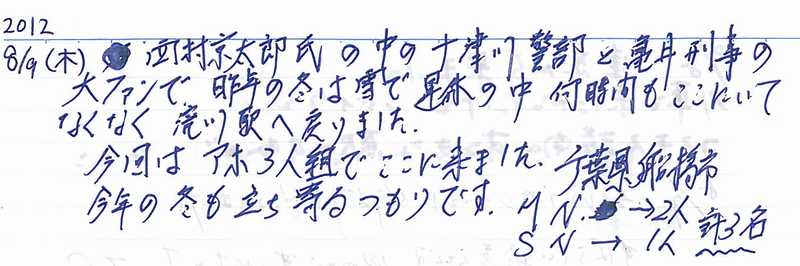 2012
8/9(木) 西村京太郎氏の中の十津川警部と亀井刑事の
大ファンで昨年の冬は雪で運休の中何時間もここにいて
なくなく滝川駅へ戻りました.
今回はアホ3人組でここに来ました. 千葉県船橋市
今年の冬も立ち寄るつもりです. M N. →2人
S N → 1人 計3名